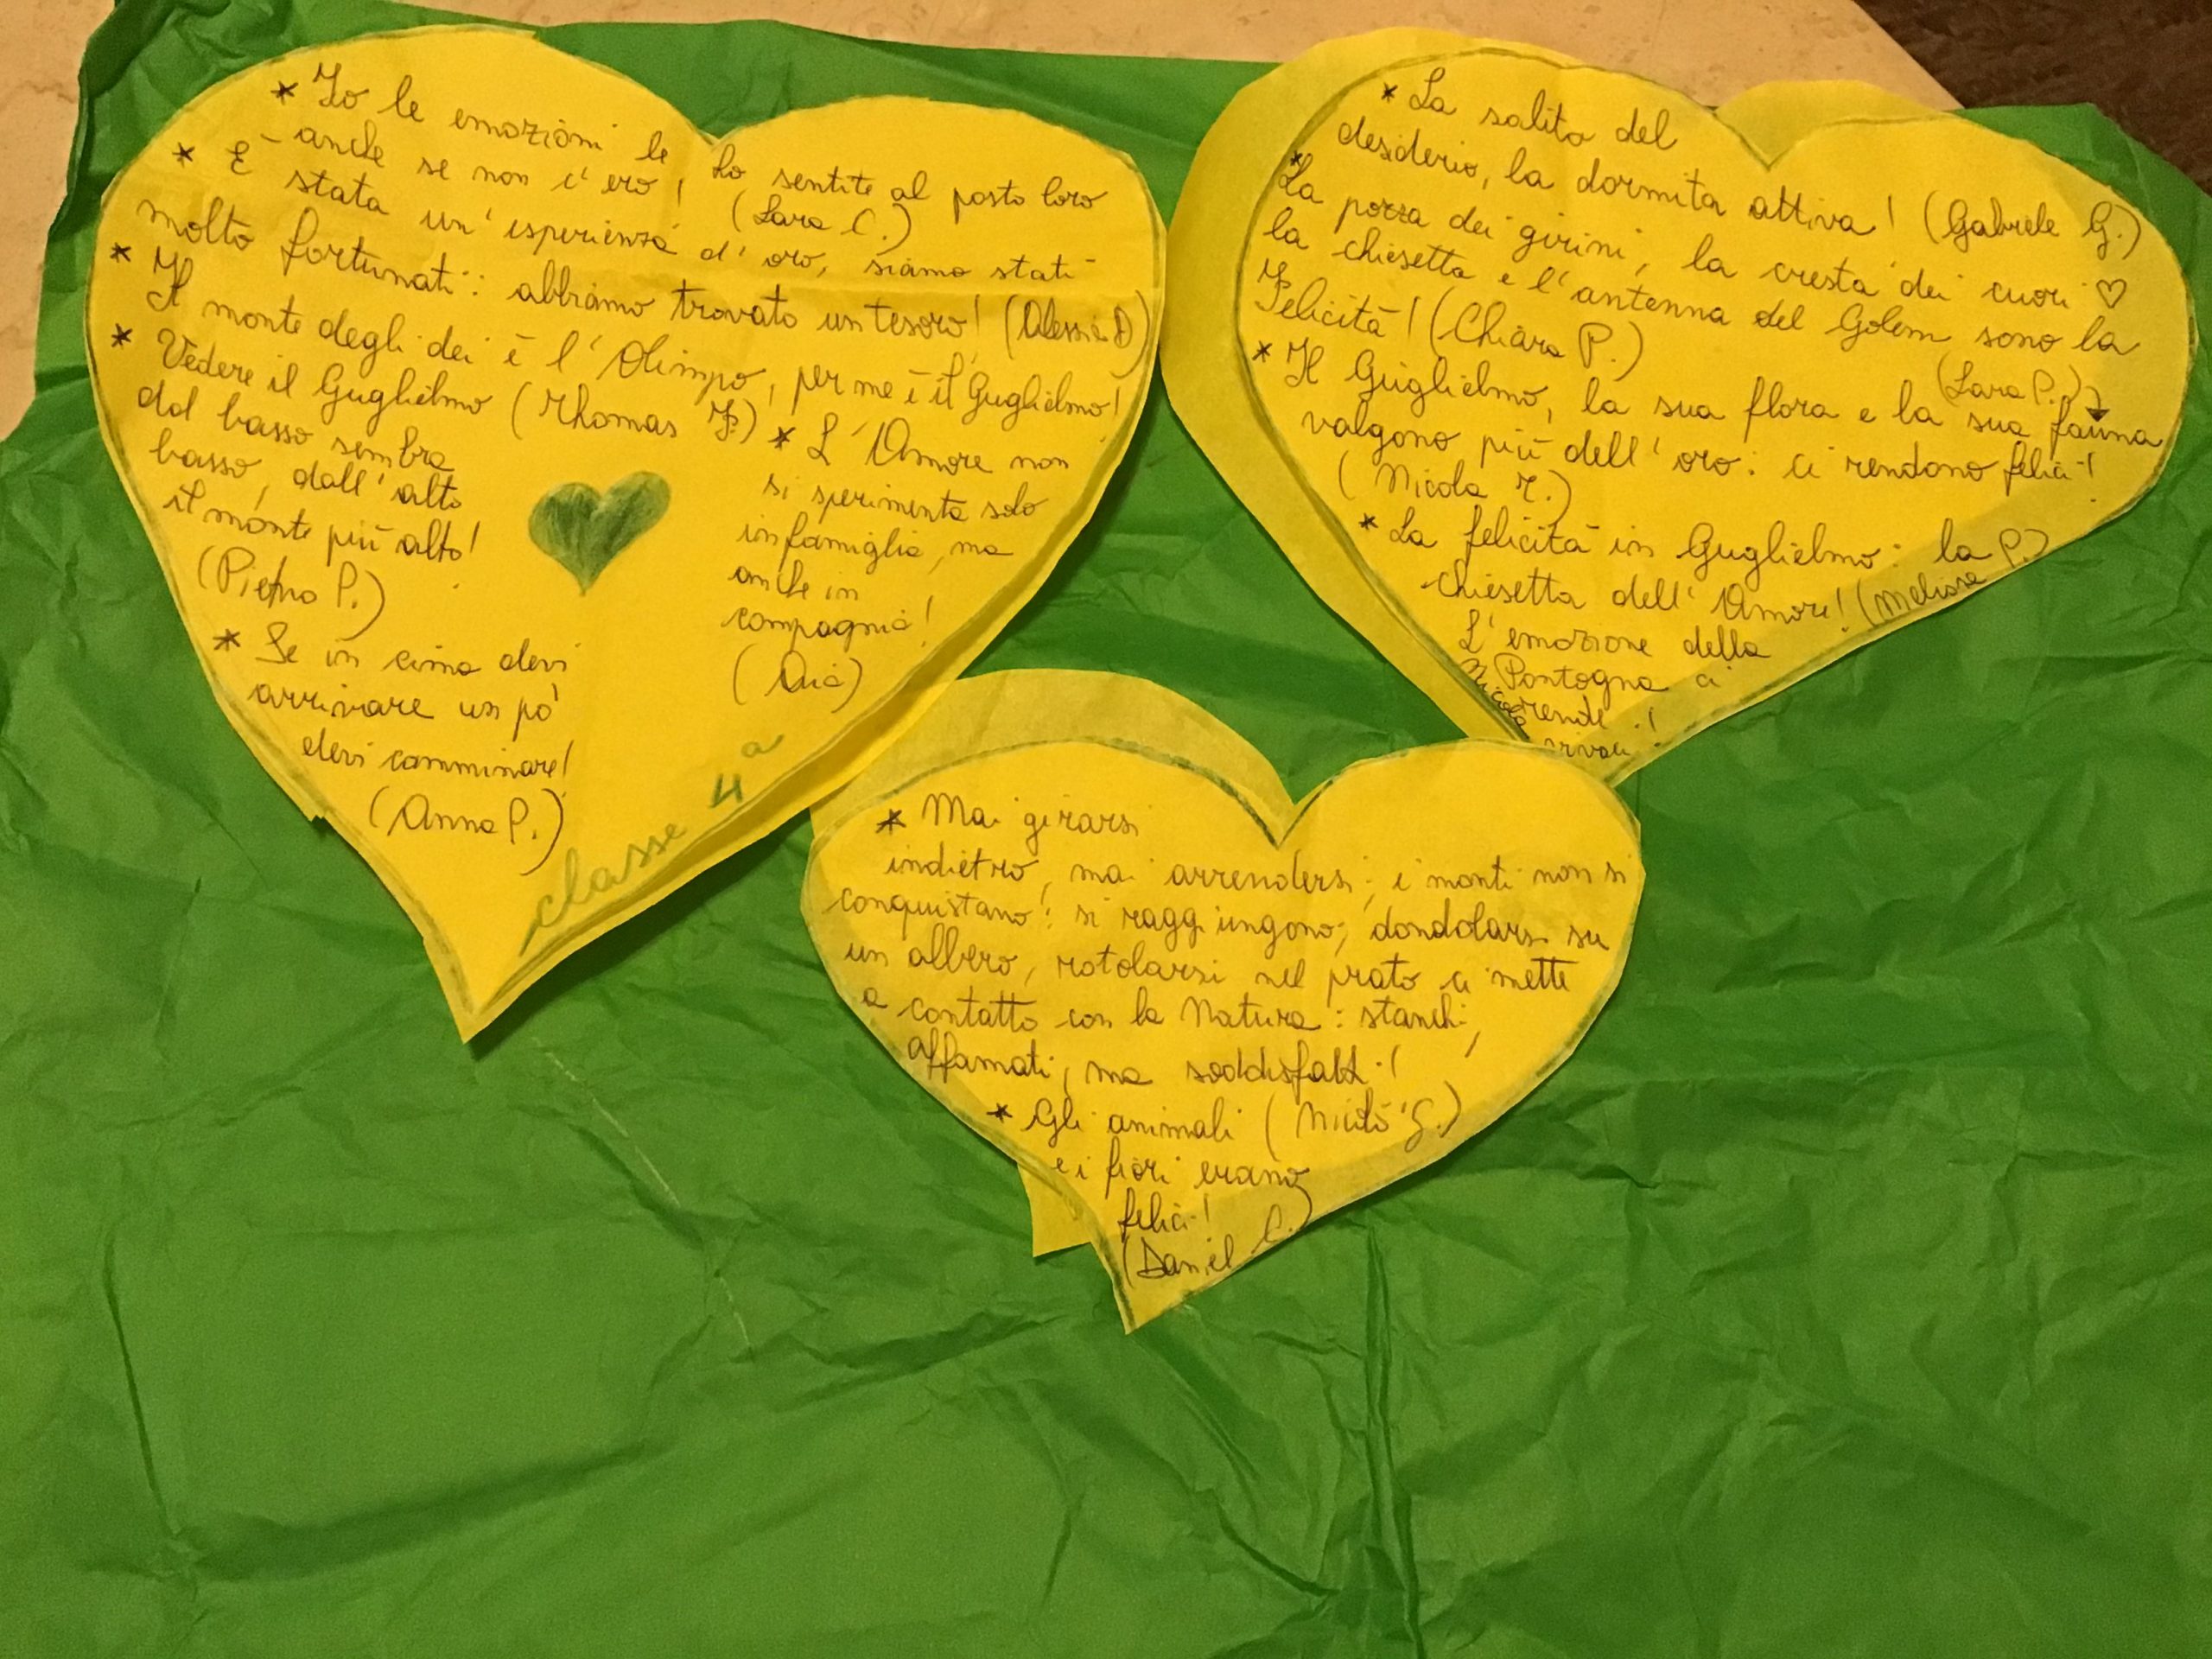 * Io le emozioni le ho sentite al posto loro
- anche se non c'ero! (Lara C.)
* È stata un'esperienza d'oro, siamo stati
molto fortunati: abbiamo trovato un tesoro! (Alessia D)
* Il monte degli dei è l'Olimpo, per me è il Guglielmo!
(Thomas F.)
* Vedere il Guglielmo
dal basso sembra
basso, dall'alto
il monte più alto!
(Pietro P.)
* Se in cima devi
arrivare un pò
devi camminare!
(Anna P.)
* L'Amore non
si sperimenta solo
in famiglia, ma
anche in
compagnia!
classe 4ª
* La salita del
desiderio, la dormita attiva! (Gabriele G.)
* La pozza dei girini, la cresta dei cuori ♡
la chiesetta e l'antenna del Golem sono la
Felicità! (Chiara P.)
(Lara P.)
* Il Guglielmo, la sua flora e la sua fauna
valgono più dell'oro: ci rendono felici!
(Nicola T.)
* La felicità in Guglielmo: la
chiesetta dell'Amore! (Melissa P.)
L'emozione della
Pontogna ci
rende
vivaci!
* Mai girarsi
indietro, mai arrendersi; i monti non si
conquistano: si raggiungono; dondolarsi su
un albero, rotolarsi nel prato ci mette
a contatto con la Natura: stanchi,
affamati, ma soddisfatti!
(Nicolò G.)
* Gli animali
e i fiori erano
felici!
(Daniel C.)